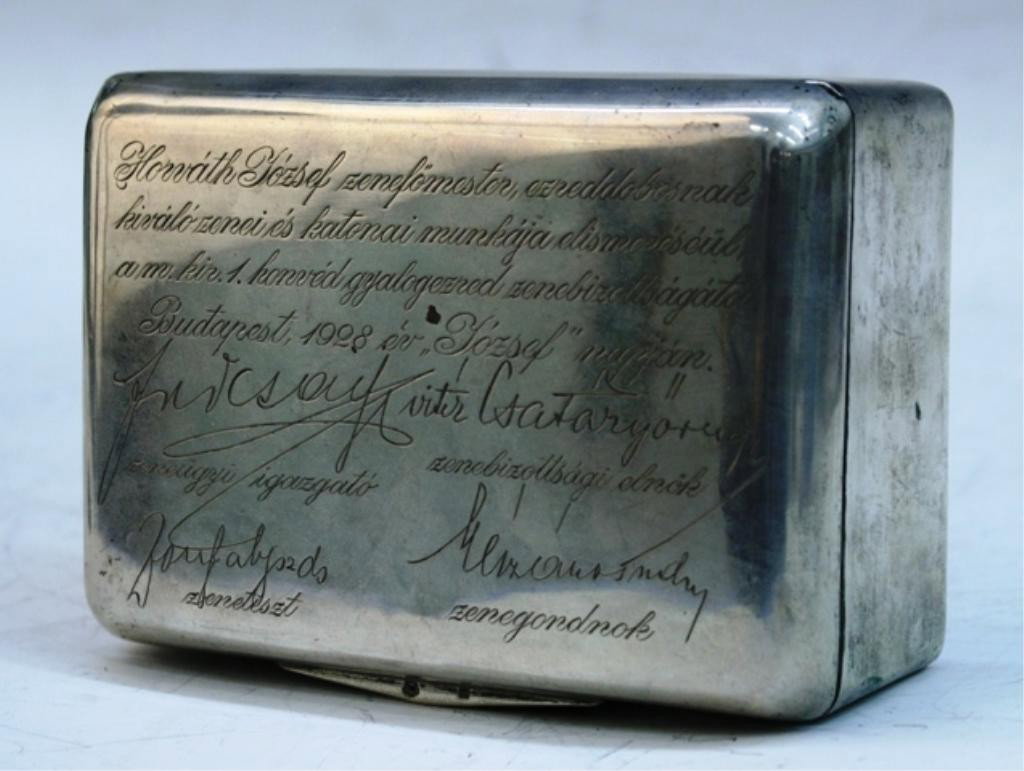 Horváth József zenefőmester, ezreddobosnak
kiváló zenei és katonai munkája elismeréséül,
a m. kir. 1. honvéd gyalogezred zenebizottságától
Budapest, 1928 év „József” napján.
vitéz
zeneügyi igazgató zenebizottsági elnök
zenetiszt zenegondnok